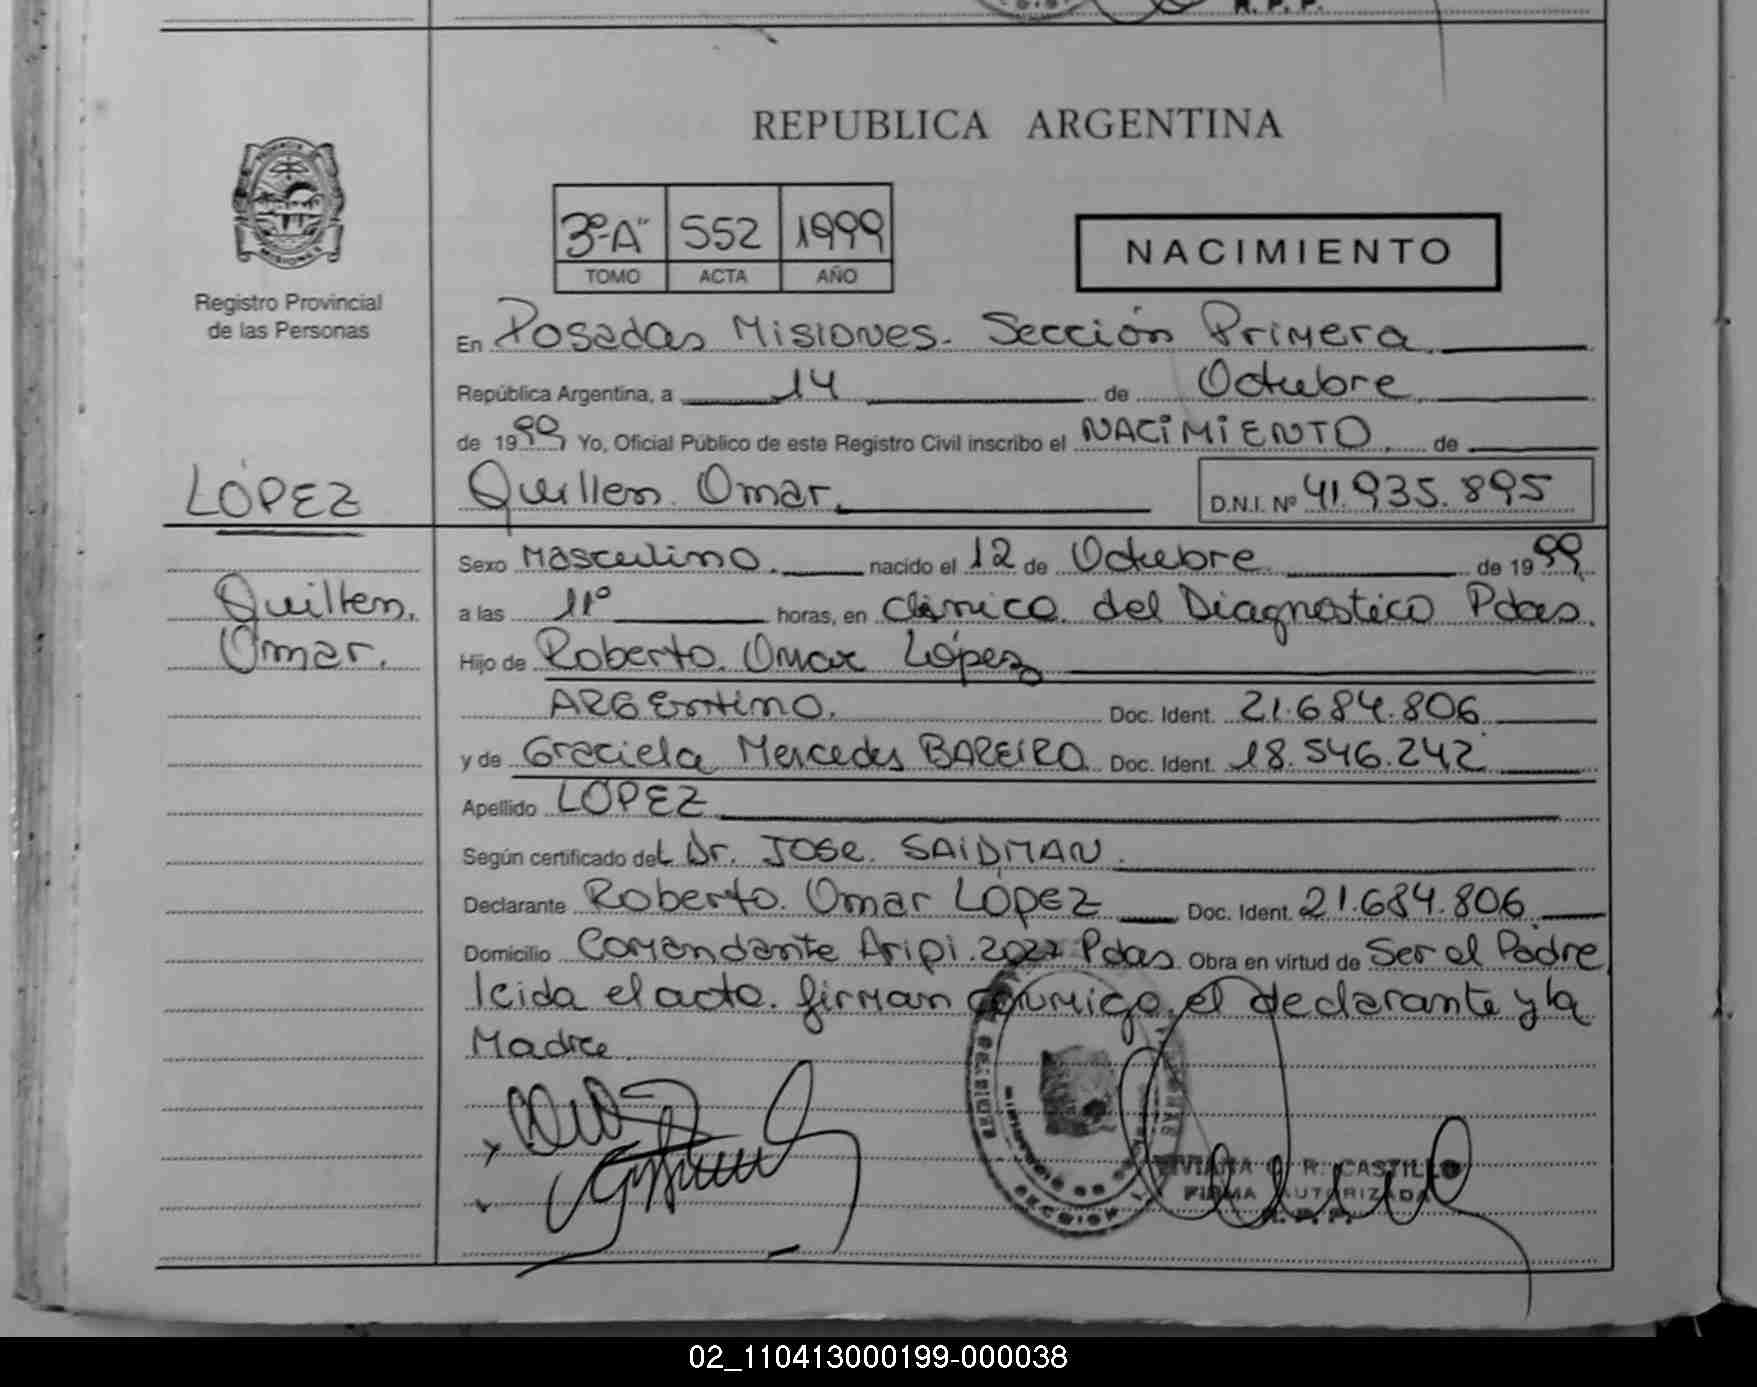 R. P. P.
REPUBLICA ARGENTINA
PROVINCIA
MISIONES
Registro Provincial
de las Personas
3º "A" 552 1999
TOMO ACTA AÑO
NACIMIENTO
En Posadas Misiones. Sección Primera
República Argentina, a 14 de Octubre
de 1999 Yo, Oficial Público de este Registro Civil inscribo el NACIMIENTO de
LÓPEZ
Quillen Omar D.N.I. Nº 41.935.895
Sexo Masculino. nacido el 12 de Octubre de 1999
Quillen.
Omar.
a las 11º horas, en Clínica del Diagnostico Pdas.
Hijo de Roberto Omar López
ARGEntino. Doc. Ident. 21.684.806
y de Graciela Mercedes BAREIRO Doc. Ident. 18.546.242
Apellido LÓPEZ
Según certificado del Dr. JOSE SAIDMAN.
Declarante Roberto Omar LÓPEZ Doc. Ident. 21.684.806
Domicilio Comandante Aripi. Pdas Obra en virtud de Ser el Padre
leida el acta. firman conmigo el declarante y la
Madre.
R. CASTILLO
FIRMA AUTORIZADA
R. P. P.
02_110413000199-000038